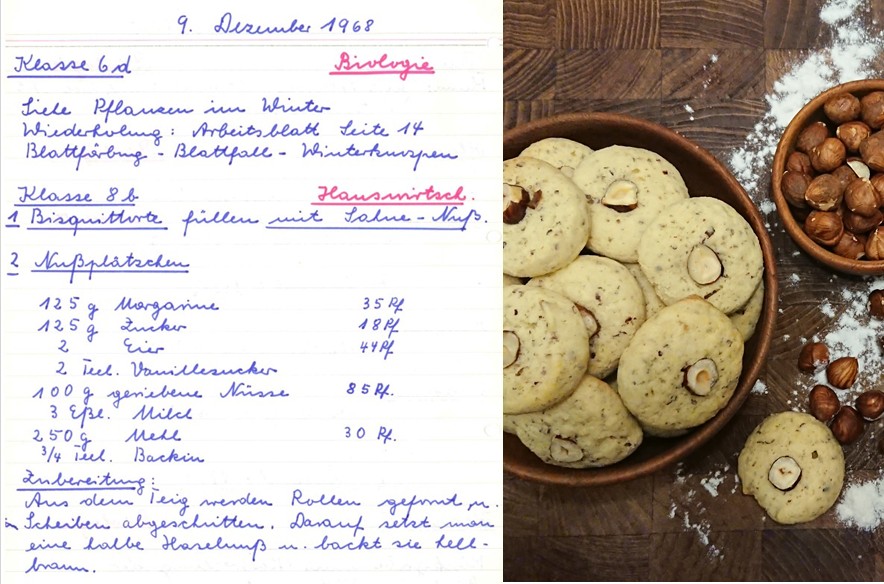 9. Dezember 1968
Klasse 6d Biologie
Siehe Pflanzen im Winter
Wiederholung: Arbeitsblatt Seite 14
Blattfärbung - Blattfall - Winterknospen
Klasse 8b Hauswirtsch.
1 Bisquittorte füllen mit Sahne-Nuß.
2 Nußplätzchen
125 g Margarine 35 Pf
125 g Zucker 18 Pf
2 Eier 44 Pf
2 Teel. Vanillezucker
100 g geriebene Nüsse 85 Pf.
3 Eßl. Milch
250 g Mehl 30 Pf.
3/4 Teel. Backin
Zubereitung:
Aus dem Teig werden Rollen geformt, u.
Scheiben abgeschnitten. Darauf setzt man
eine halbe Haselnuß u. backt sie hell-
braun.